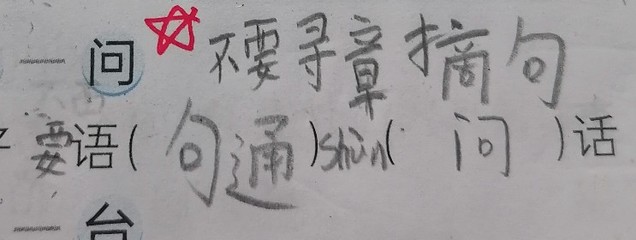 问 不要寻章摘句
要语(句通)shùn(问)话
台